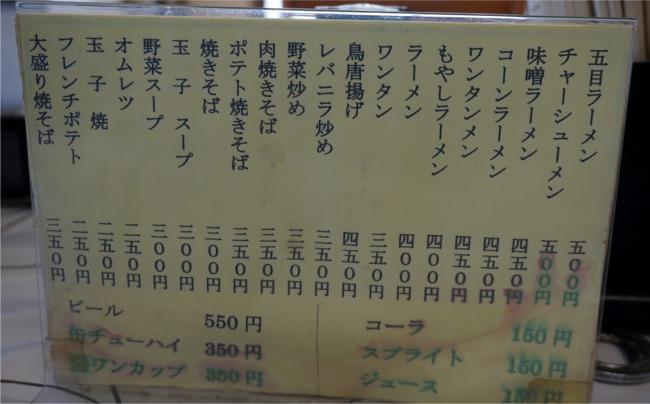 五目ラーメン 五００円
チャーシューメン 五００円
味噌ラーメン 四五０円
コーンラーメン 四五０円
ワンタンメン 四五０円
もやしラーメン 四００円
ラーメン 四００円
ワンタン 三五０円
鳥唐揚げ 四五０円
レバニラ炒め 三五０円
野菜炒め 三五０円
肉焼きそば 三五０円
ポテト焼きそば 三五０円
焼きそば 三００円
玉子スープ 三００円
野菜スープ 三００円
オムレツ 二五０円
玉子焼 二五０円
フレンチポテト 二五０円
大盛り焼そば 三五０円
ビール 550円
缶チューハイ 350円
ワンカップ 350円
コーラ 150円
スプライト 150円
ジュース 150円